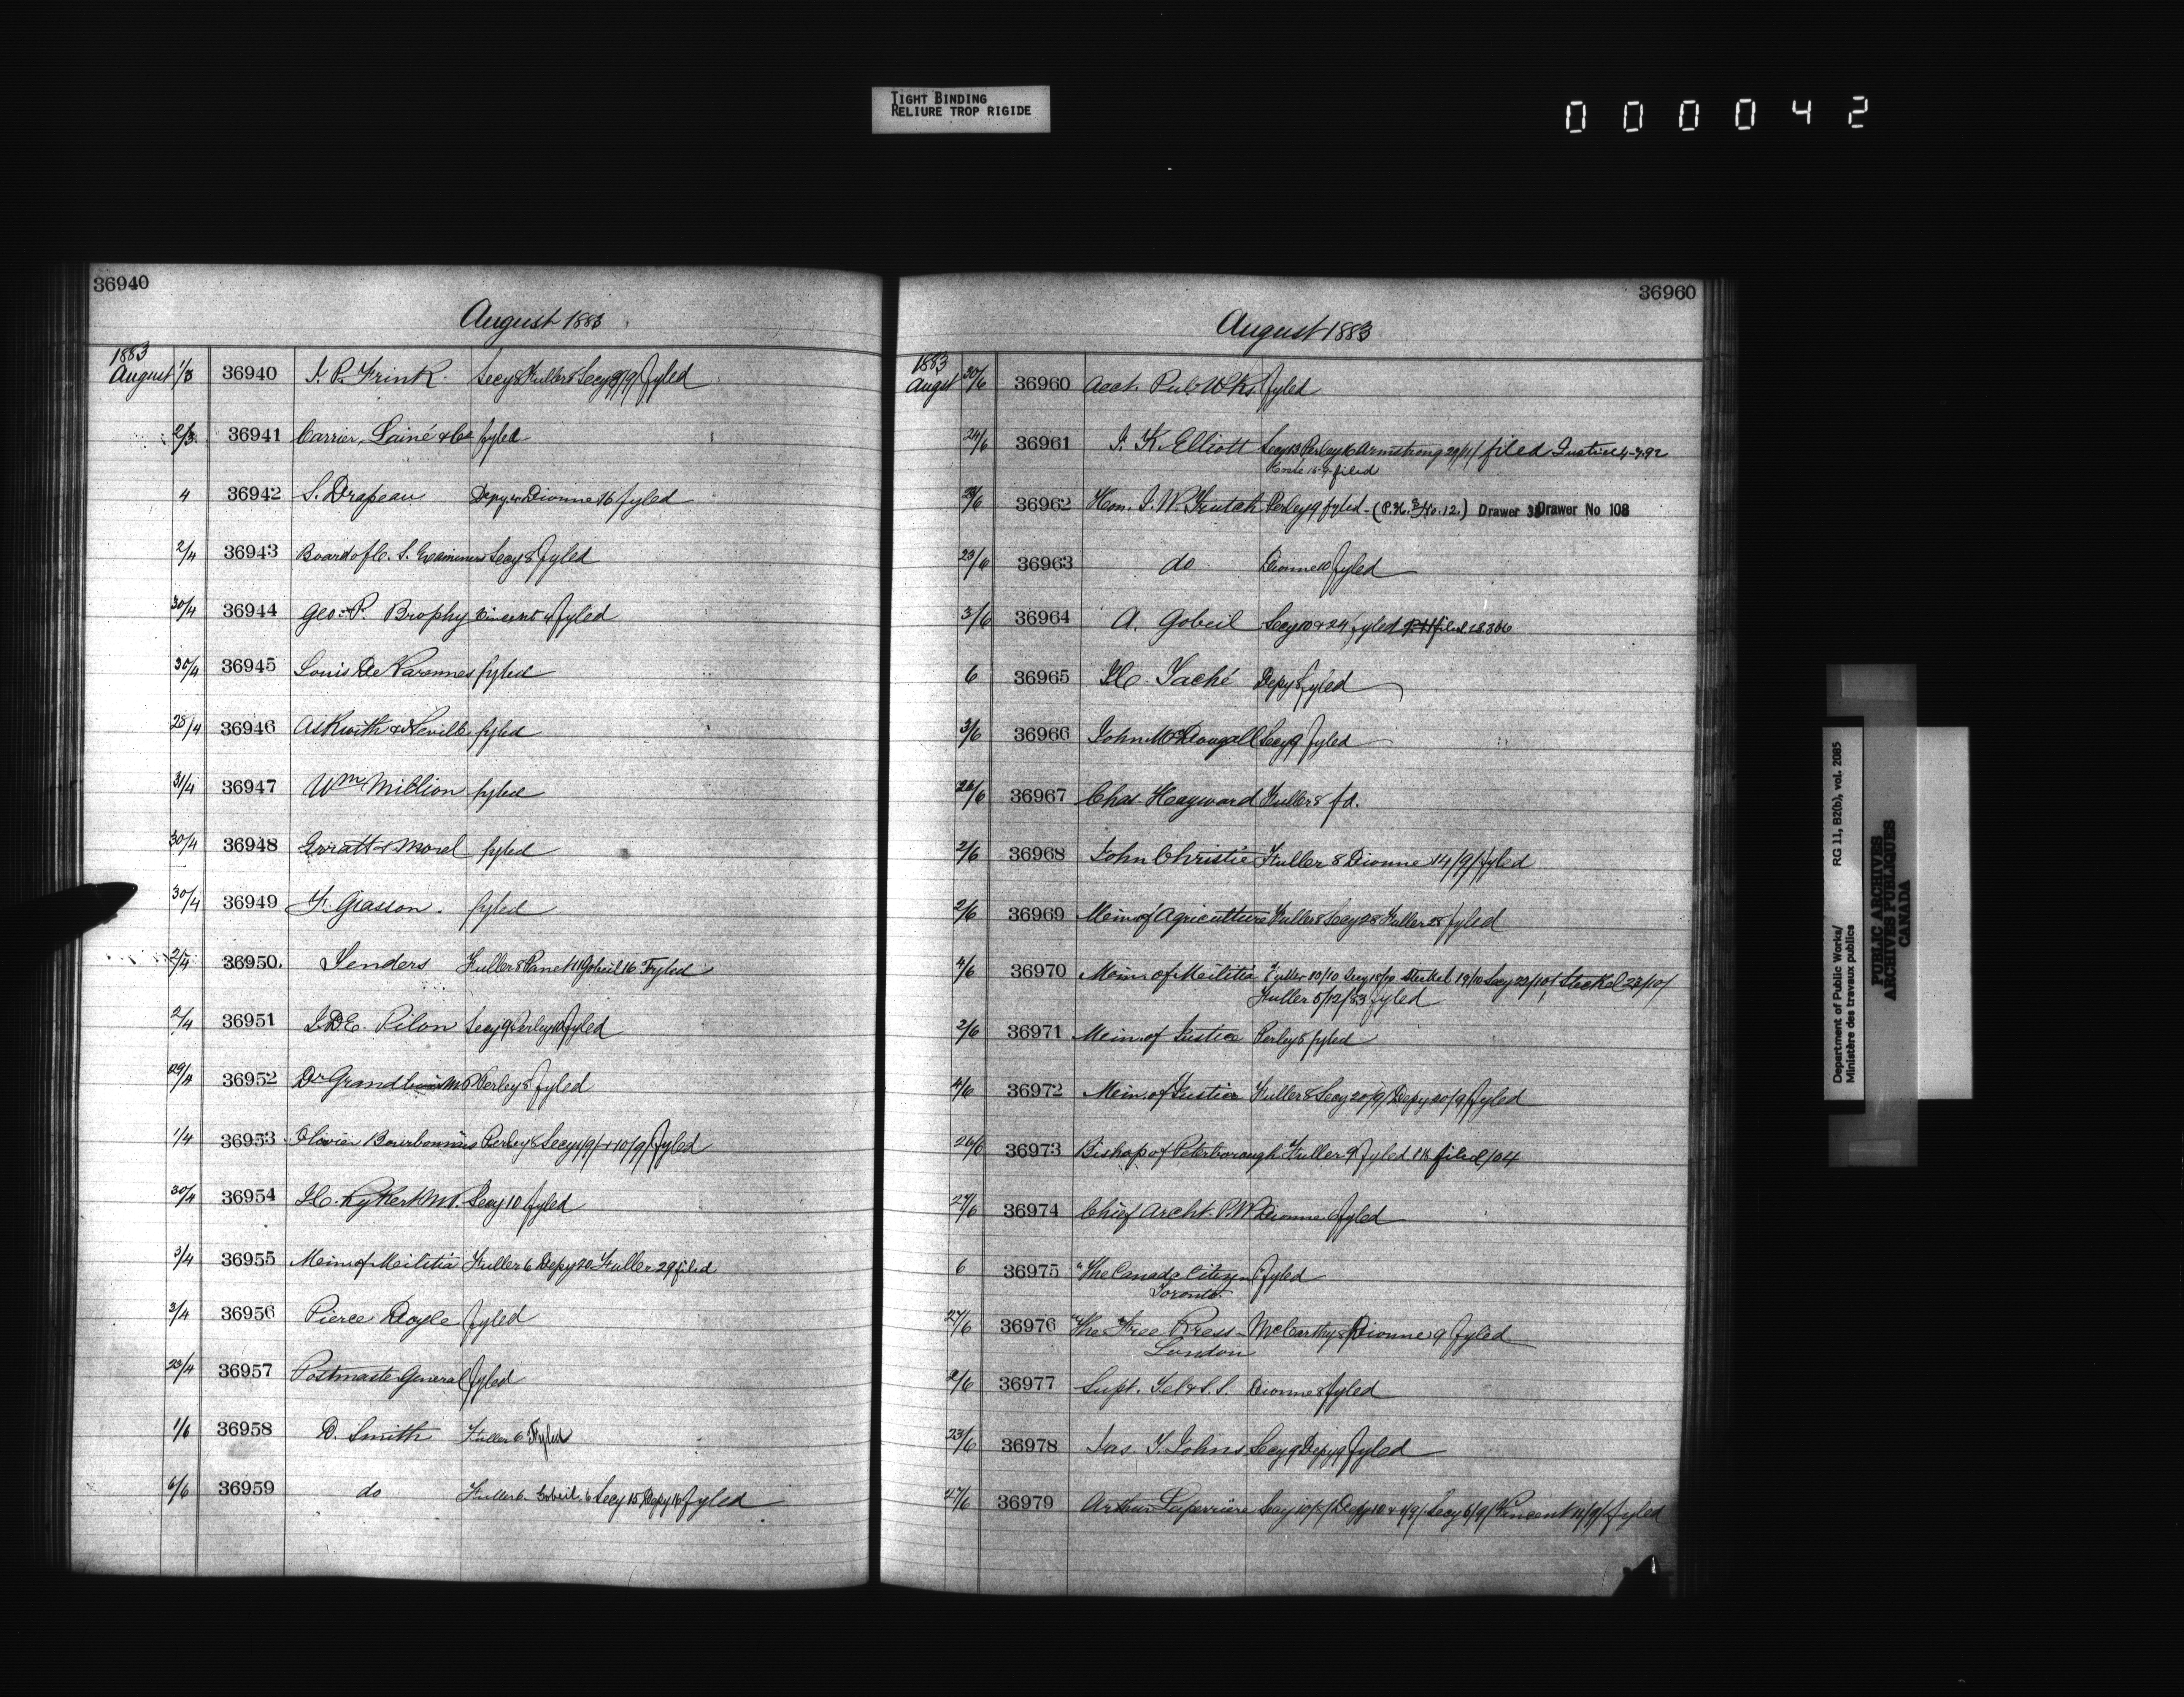 TIGHT BINDING
RELIURE TROP RIGIDE
000042
36940
August 1883
1883
August 1/3 36940 J. P. Frink Secy 8 Fuller 8 Secy 8/9/ fyled
2/3 36941 Carrier, Lainé & Co fyled
4 36942 S. Drapeau Depy Dionne 16 fyled
2/4 36943 Board of C. S. Examiners Secy 8 fyled
30/4 36944 Geo. P. Brophy Vincent fyled
30/4 36945 Louis De Varennes fyled
28/4 36946 Askwith & Neville fyled
31/4 36947 Wm Million fyled
30/4 36948 Grratt & Morel fyled
30/4 36949 F. Giasson. fyled
2/4 36950. Tenders Fuller 8 Panet 11 Gobeil 16 Fyled
2/4 36951 J.D.E. Pilon Secy 9 Perley 10 fyled
29/4 36952 Dr Grandbois MP Perley 8 fyled
1/4 36953 Olivier Bourbonnais Perley 8 Secy 4/9/ + 10/9/ fyled
30/4 36954 J.C. Rykert M.P. Secy 10 fyled
3/4 36955 Mem. of Militia Fuller 6 Depy 20 Fuller 29 filed
3/4 36956 Pierce Doyle fyled
23/4 36957 Postmaster General fyled
1/6 36958 D. Smith Fuller 6 Fyled
6/6 36959 do Fuller 6. Gobeil 6 Secy 15 Depy 16 fyled
36960
August 1883
1883
Augst 30/6 36960 Acct. Pub. Wks. fyled
24/6 36961 J. K. Elliott Secy 13 Perley 16 Armstrong 29/11/ filed Justice 4-7.92
filed
28/6 36962 Hon. J. W. Trutch Perley 9 fyled - (P.H. No. 12.) Drawer Drawer No 108
23/6 36963 do Dionne 10 fyled
3/6 36964 A. Gobeil Secy 10 & 24 fyled filed 28306
6 36965 J.C. Taché Depy 8 fyled
3/6 36966 John McDougall Secy 9 fyled
26/6 36967 Chas. Hayward Fuller 8 fd.
2/6 36968 John Christie Fuller 8 Dionne 14/9/ fyled
2/6 36969 Mem. of Agriculture Fuller 8 Secy 28 Fuller 28 fyled
4/6 36970 Mem. of Militia Fuller 10/10 Secy 18/10 Steckel 19/10 Secy 22/10/ Steckel 23/10/
Fuller 5/12/83 fyled
2/6 36971 Mem. of Justice Perley 8 fyled
4/6 36972 Mem. of Justice Fuller 8 Secy 20/9/ Depy 20/9/ fyled
26/6 36973 Bishop of Peterborough Fuller 9 fyled filed 104
27/6 36974 Chief Archt. P.W. Dionne fyled
6 36975 "The Canada Citizen" fyled
Toronto.
27/6 36976 "The Free Press McCarthy 8 Dionne 9 fyled
London
2/6 36977 Supt. Tel & S.S. Dionne 8 fyled
23/6 36978 Jas. T. Johns Secy 9 Depy 9 fyled
27/6 36979 Arthur Laperrière Secy 10/ Depy 10 & 4/9/ Secy 6/9/ Vincent 11/9/ fyled
Department of Public Works/ RG 11, B2(b), vol. 2085
Ministère des travaux publics
PUBLIC ARCHIVES
ARCHIVES PUBLIQUES
CANADA